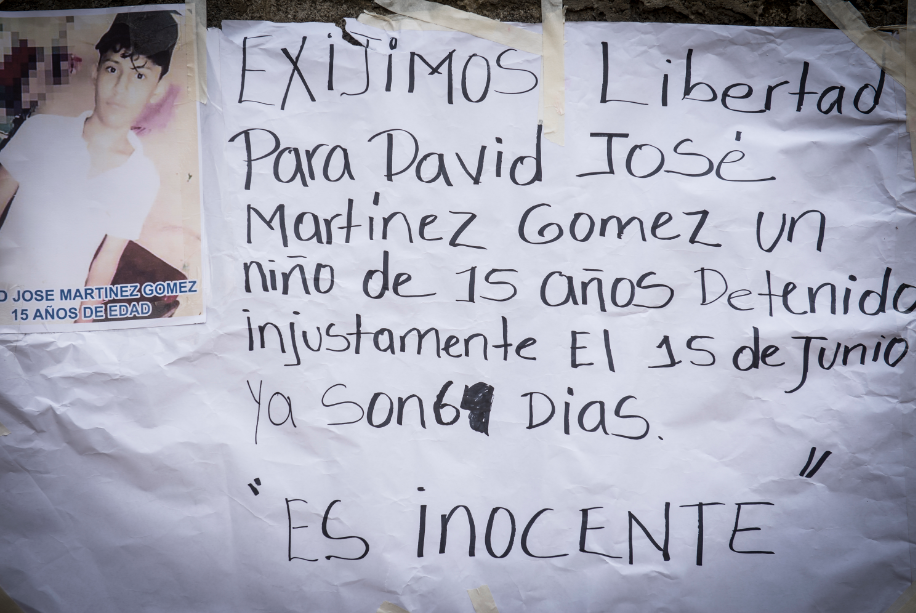 EXIJIMOS Libertad
Para David José
Martinez Gomez un
niño de 15 años Detenido
injustamente El 15 de Junio
Ya son Dias.
"ES INOCENTE"
O JOSE MARTINEZ GOMEZ
15 AÑOS DE EDAD